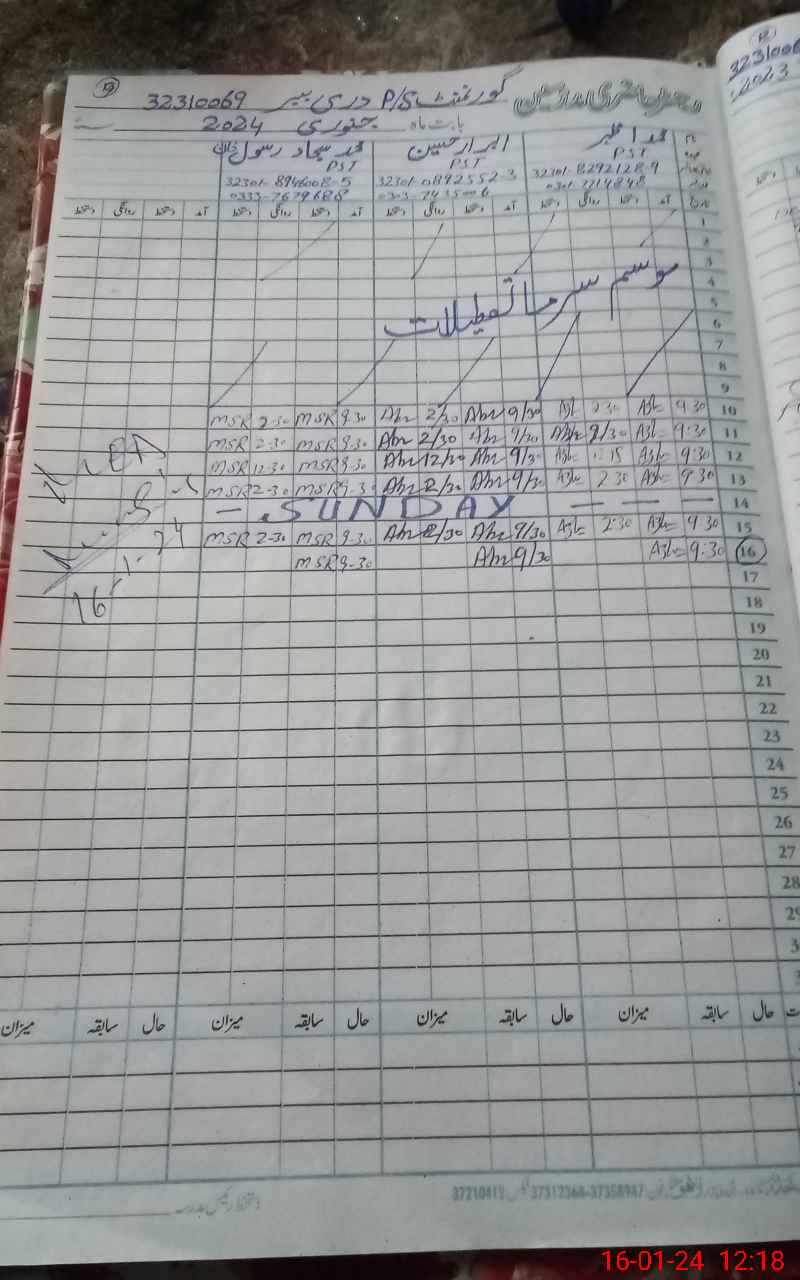 19
گورنمنٹ P/S دری ہیر 32310069
بابت ماہ جنوری 2024
محمد اظہر ابرار حسین محمد سجاد رسول
PST PST PST
32301-8292128-9 32301-0892552-3 32301-8946008-5
0301-7214848 0303-7435006 0333-7679688
آمد دستخط روانگی دستخط آمد دستخط روانگی دستخط آمد دستخط روانگی دستخط آمد دستخط روانگی دستخط
1
2
3
موسم سرما تعطیلات
4
5
6
7
8
9
MSR 2-30 MSR 9-30 Abr 2/30 Abr 9/30 Azh 2:30 Azh 9:30 10
MSR 2-30 MSR 9-30 Abr 2/30 Abr 9/30 Azh 9:30 11
MSR 12-30 MSR 9-30 Abr 12/30 Abr 9/30 Azh Azh 9:30 12
MSR 2-30 MSR 9-30 Abr 2/30 Abr 9/30 Azh 2:30 Azh 9:30 13
– SUNDAY – – – 14
MSR 2-30 MSR 9-30 Abr 2/30 Abr 9/30 Azh 2:30 Azh 9:30 15
MSR 9-30 Abr 9/30 Azh 9:30 16
16-1-24
17
18
19
20
21
22
23
24
25
26
27
28
29
حال سابقہ میزان حال سابقہ میزان حال سابقہ میزان حال سابقہ میزان
37312368-37358947 37210412
16-01-24 12:18